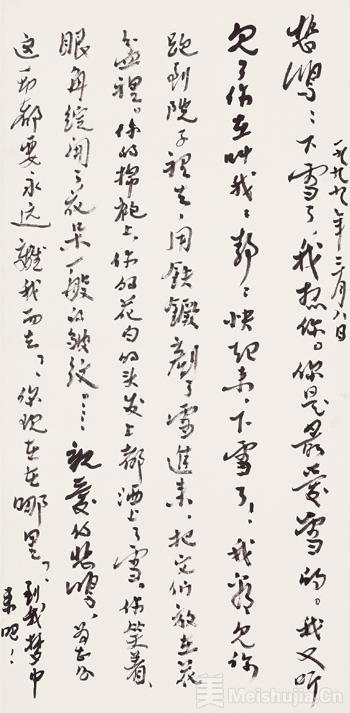 一九九九年三月八日
悲鸿：下雪了，我想你。你是最爱雪的。我又听
见了你在叫我：静：快起来，下雪了！我看见你
跑到院子裡去，用铁锹剷了雪進来，把它们放在花
盆裡。你的棉袍上、你的花白的头发上都洒上了雪。你笑着，
眼角绽开了花朵一般的皱纹。……親爱的悲鸿，
这一切都要永远離我而去？你现在在哪里？到我梦中
来吧！
美 Meishujia.Cn